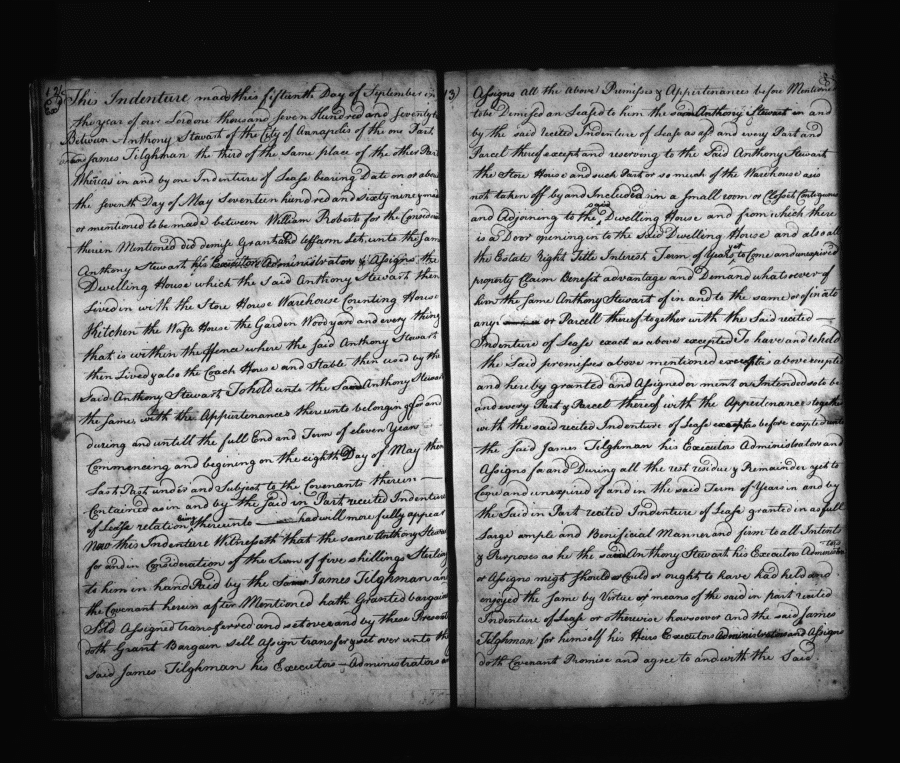 This Indenture made this fifteenth Day of September in
the year of our Lord one thousand seven Hundred and seventy
Between Anthony Stewart of the City of Annapolis of the one Part
and James Tilghman the third of the same place of the other Part
Whereas in and by one Indenture of Lease bearing Date on or about
the seventh Day of May Seventeen hundred and sixty nine made
or mentioned to be made between William Roberts for the Consideration
therein Mentioned did demise Grant and to ffarm Let unto the said
Anthony Stewart his Executors Administrators & Assigns the
Dwelling House which the said Anthony Stewart then
Lived in with the Store House Warehouse Counting House
Kitchen the Wash House the Garden Wood yard and every thing
that is within the ffence where the said Anthony Stewart
then Lived & also the Coach House and Stable then used by the
said Anthony Stewart To hold unto the Said Anthony Stewart
the same with the Appurtenances thereunto belonging for and
during and untill the full End and Term of eleven Years
Commencing and begining on the eighth Day of May then
Last Past under and Subject to the Covenants therein
Contained as in and by the said in Part recited Indenture
of Lease relation being thereunto had will more fully appear
Now this Indenture Witnesseth that the same Anthony Stewart
for and in Consideration of the Sum of five shillings Sterling
to him in hand Paid by the Same James Tilghman and
the Covenant herein after Mentioned hath Granted bargain
Sold Assigned transferred and set over and by these Presents
doth Grant Bargain sell Assign transfer & set over unto the
said James Tilghman his Executors Administrators and
13)
Assigns all the Above Premises & Appurtenances before Mentioned
to be Demised an Leased to him the said Anthony Stewart in and
by the said recited Indenture of Lease as afd and every Part and
Parcel thereof except and reserving to the Said Anthony Stewart
the Store House and such Part or so much of the Warehouse as is
not taken off by and Included inn a Small room or Closet Contiguous
and Adjoining to the said Dwelling House and from which there
is a Door opening into the Said Dwelling House and also all
the Estate Right Title Interest Term of Years yet to Come and unexpired
property Claim Benefit advantage and Demand whatsoever of
him the same Anthony Stewart of in and to the same or of in a to
any or Parcell thereof together with the Said recited
Indenture of Lease except as above excepted To have and to hold
the Said premises above mentioned except as above excepted
and hereby granted and Assigned or ment or Intended so to be
and every Part & Parcel thereof with the Appertinances together
with the said recited Indenture of Lease except as before excepted unto
the said James Tilghman his Executors Administrators and
Assigns for and During all the rest residue & Remainder yet to
Come and unexpired of and in the said Term of Years in and by
the Said in Part recited Indenture of Lease granted in as full
Large ample and Beneficial Manner and firm to all Intents
& Purposes as he the said Anthony Stewart his Executors Administrators
or Assigns might Should or Could or ought to have had held and
enjoyed the same by Virtue or means of the said in part recited
Indenture of Lease or otherwise howsoever and the said James
Tilghman for himself his Heirs Executors Administrators and Assigns
doth Covenant Promise and agree to and with the Said